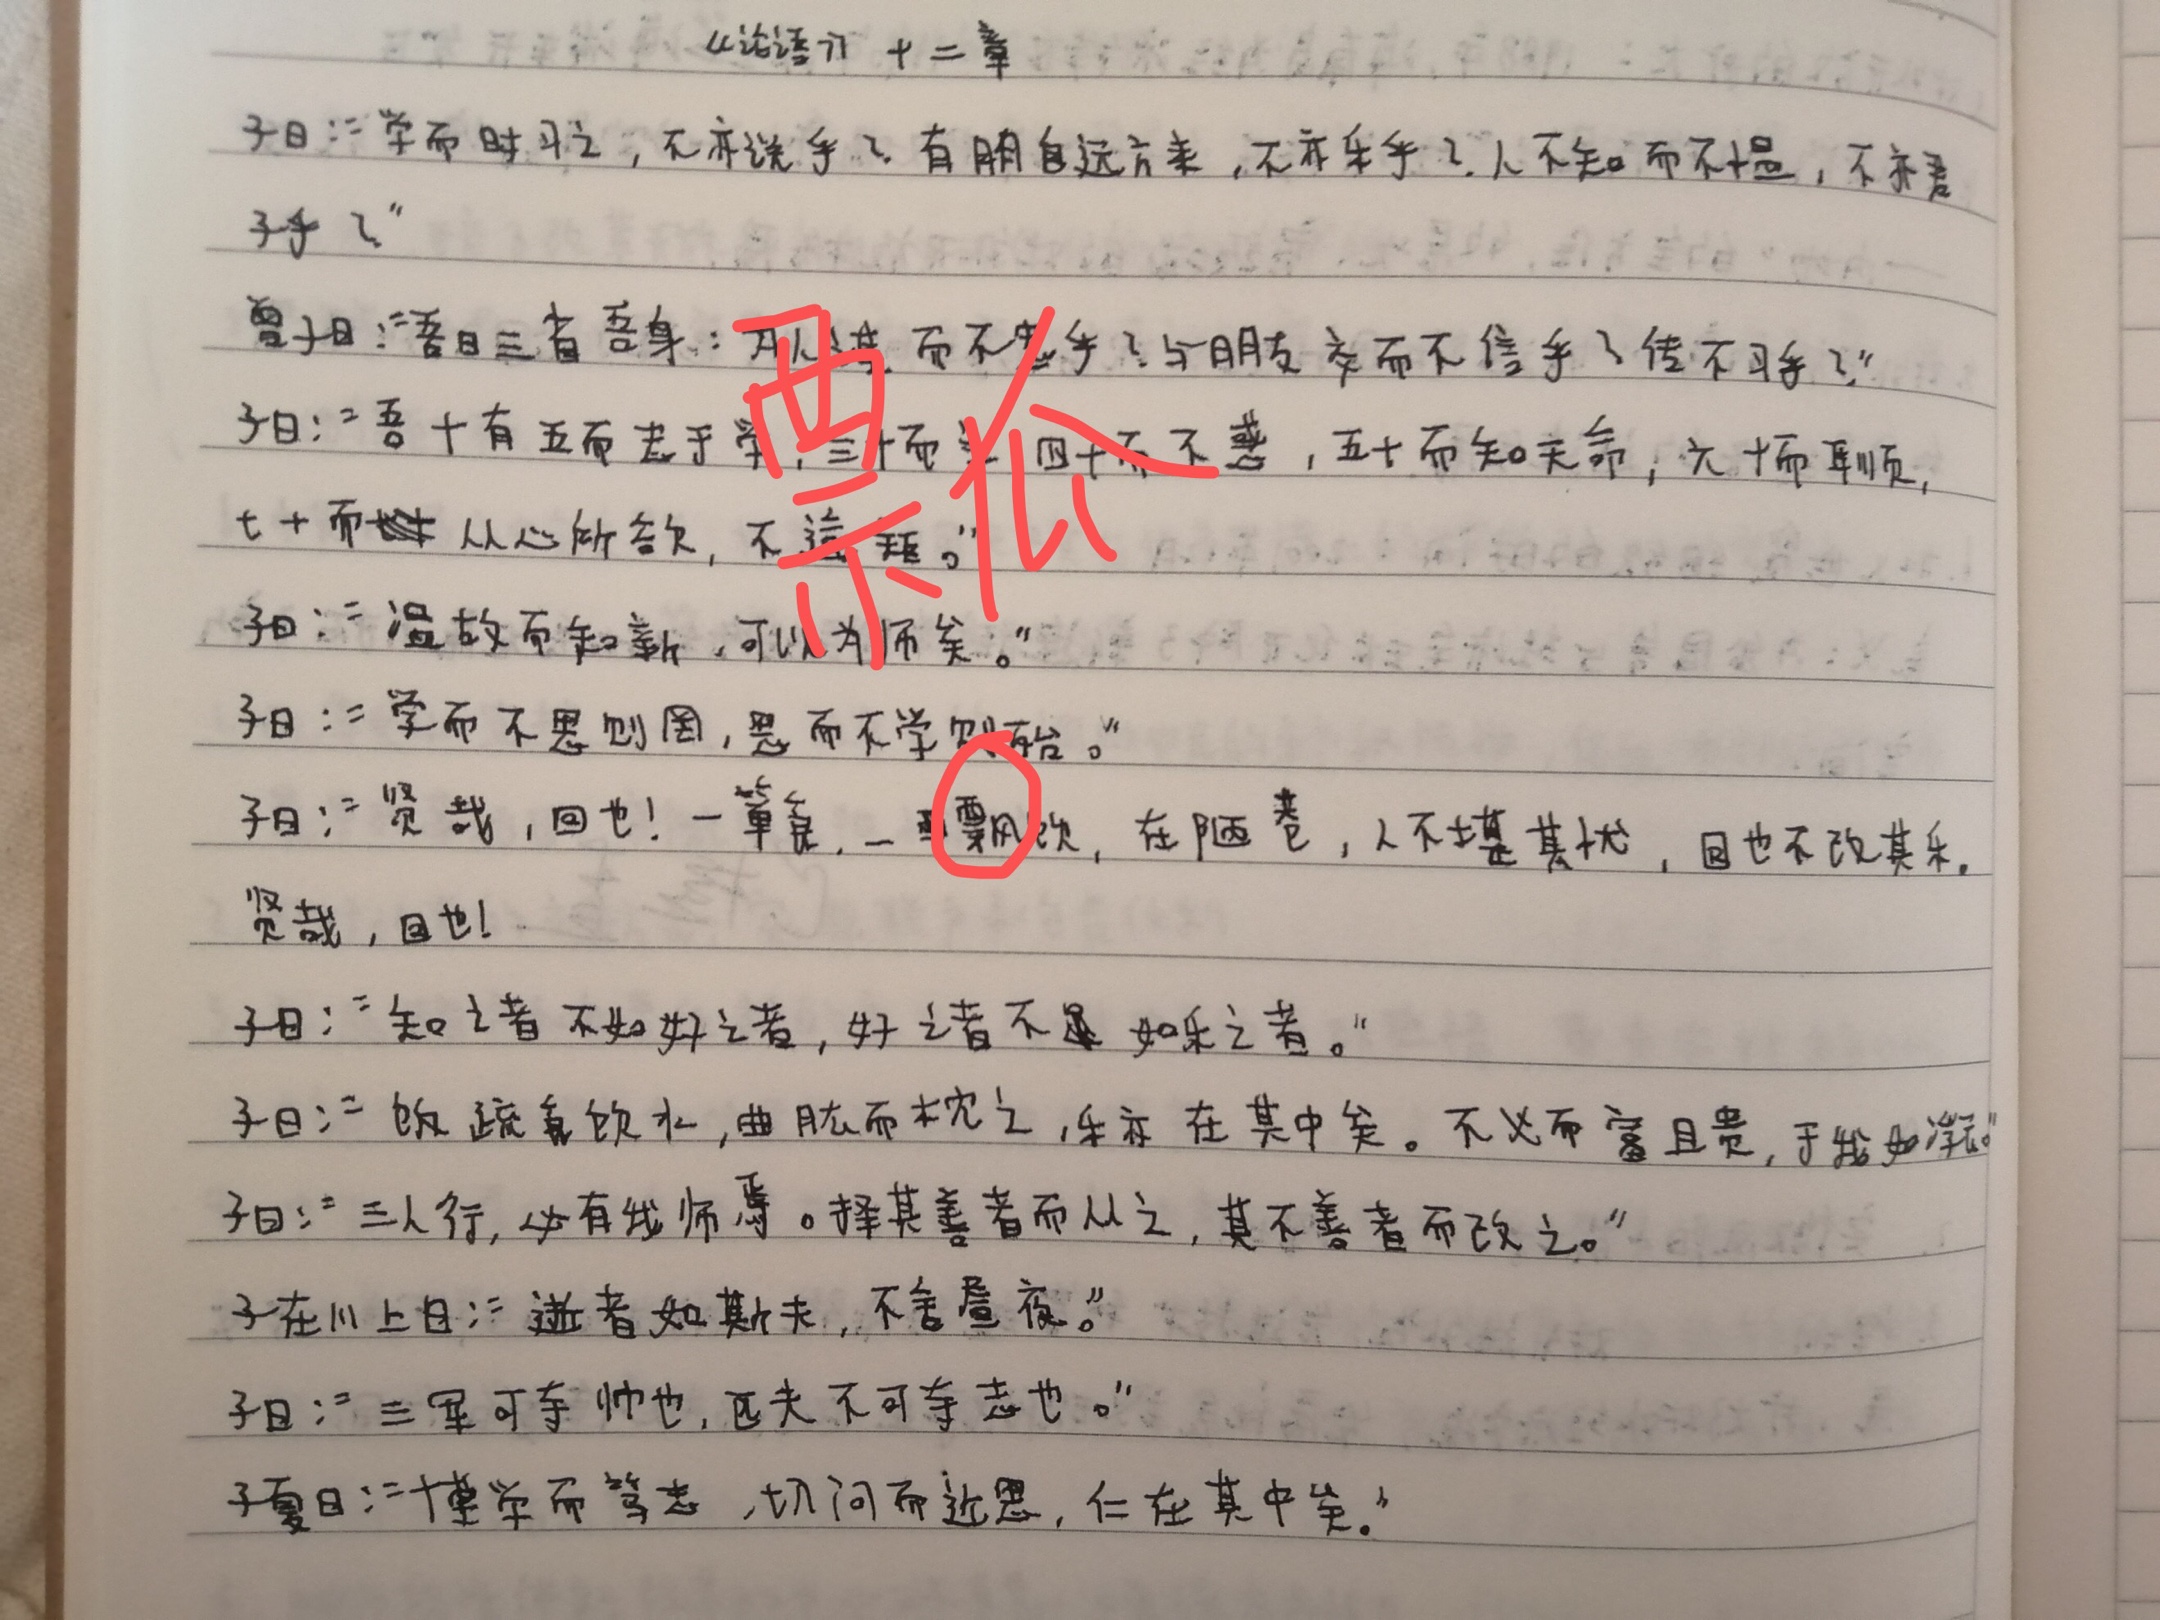 《论语》十二章
子曰:“学而时习之,不亦说乎?有朋自远方来,不亦乐乎?人不知而不愠,不亦君
子乎?”
曾子曰:“吾日三省吾身:为人谋而不忠乎?与朋友交而不信乎?传不习乎?”
瓢
子曰:“吾十有五而志于学,三十而立 四十而不惑,五十而知天命,六十而耳顺,
七十而从心所欲,不逾矩。”
子曰:“温故而知新,可以为师矣。”
子曰:“学而不思则罔,思而不学则殆。”
子曰:“贤哉,回也!一箪食,一飘饮,在陋巷,人不堪其忧,回也不改其乐。
贤哉,回也!
子曰:“知之者不如好之者,好之者不如乐之者。”
子曰:“饭疏食饮水,曲肱而枕之,乐亦在其中矣。不义而富且贵,于我如浮云。”
子曰:“三人行,必有我师焉。择其善者而从之,其不善者而改之。”
子在川上曰:“逝者如斯夫,不舍昼夜。”
子曰:“三军可夺帅也,匹夫不可夺志也。”
子夏曰:“博学而笃志,切问而近思,仁在其中矣。”